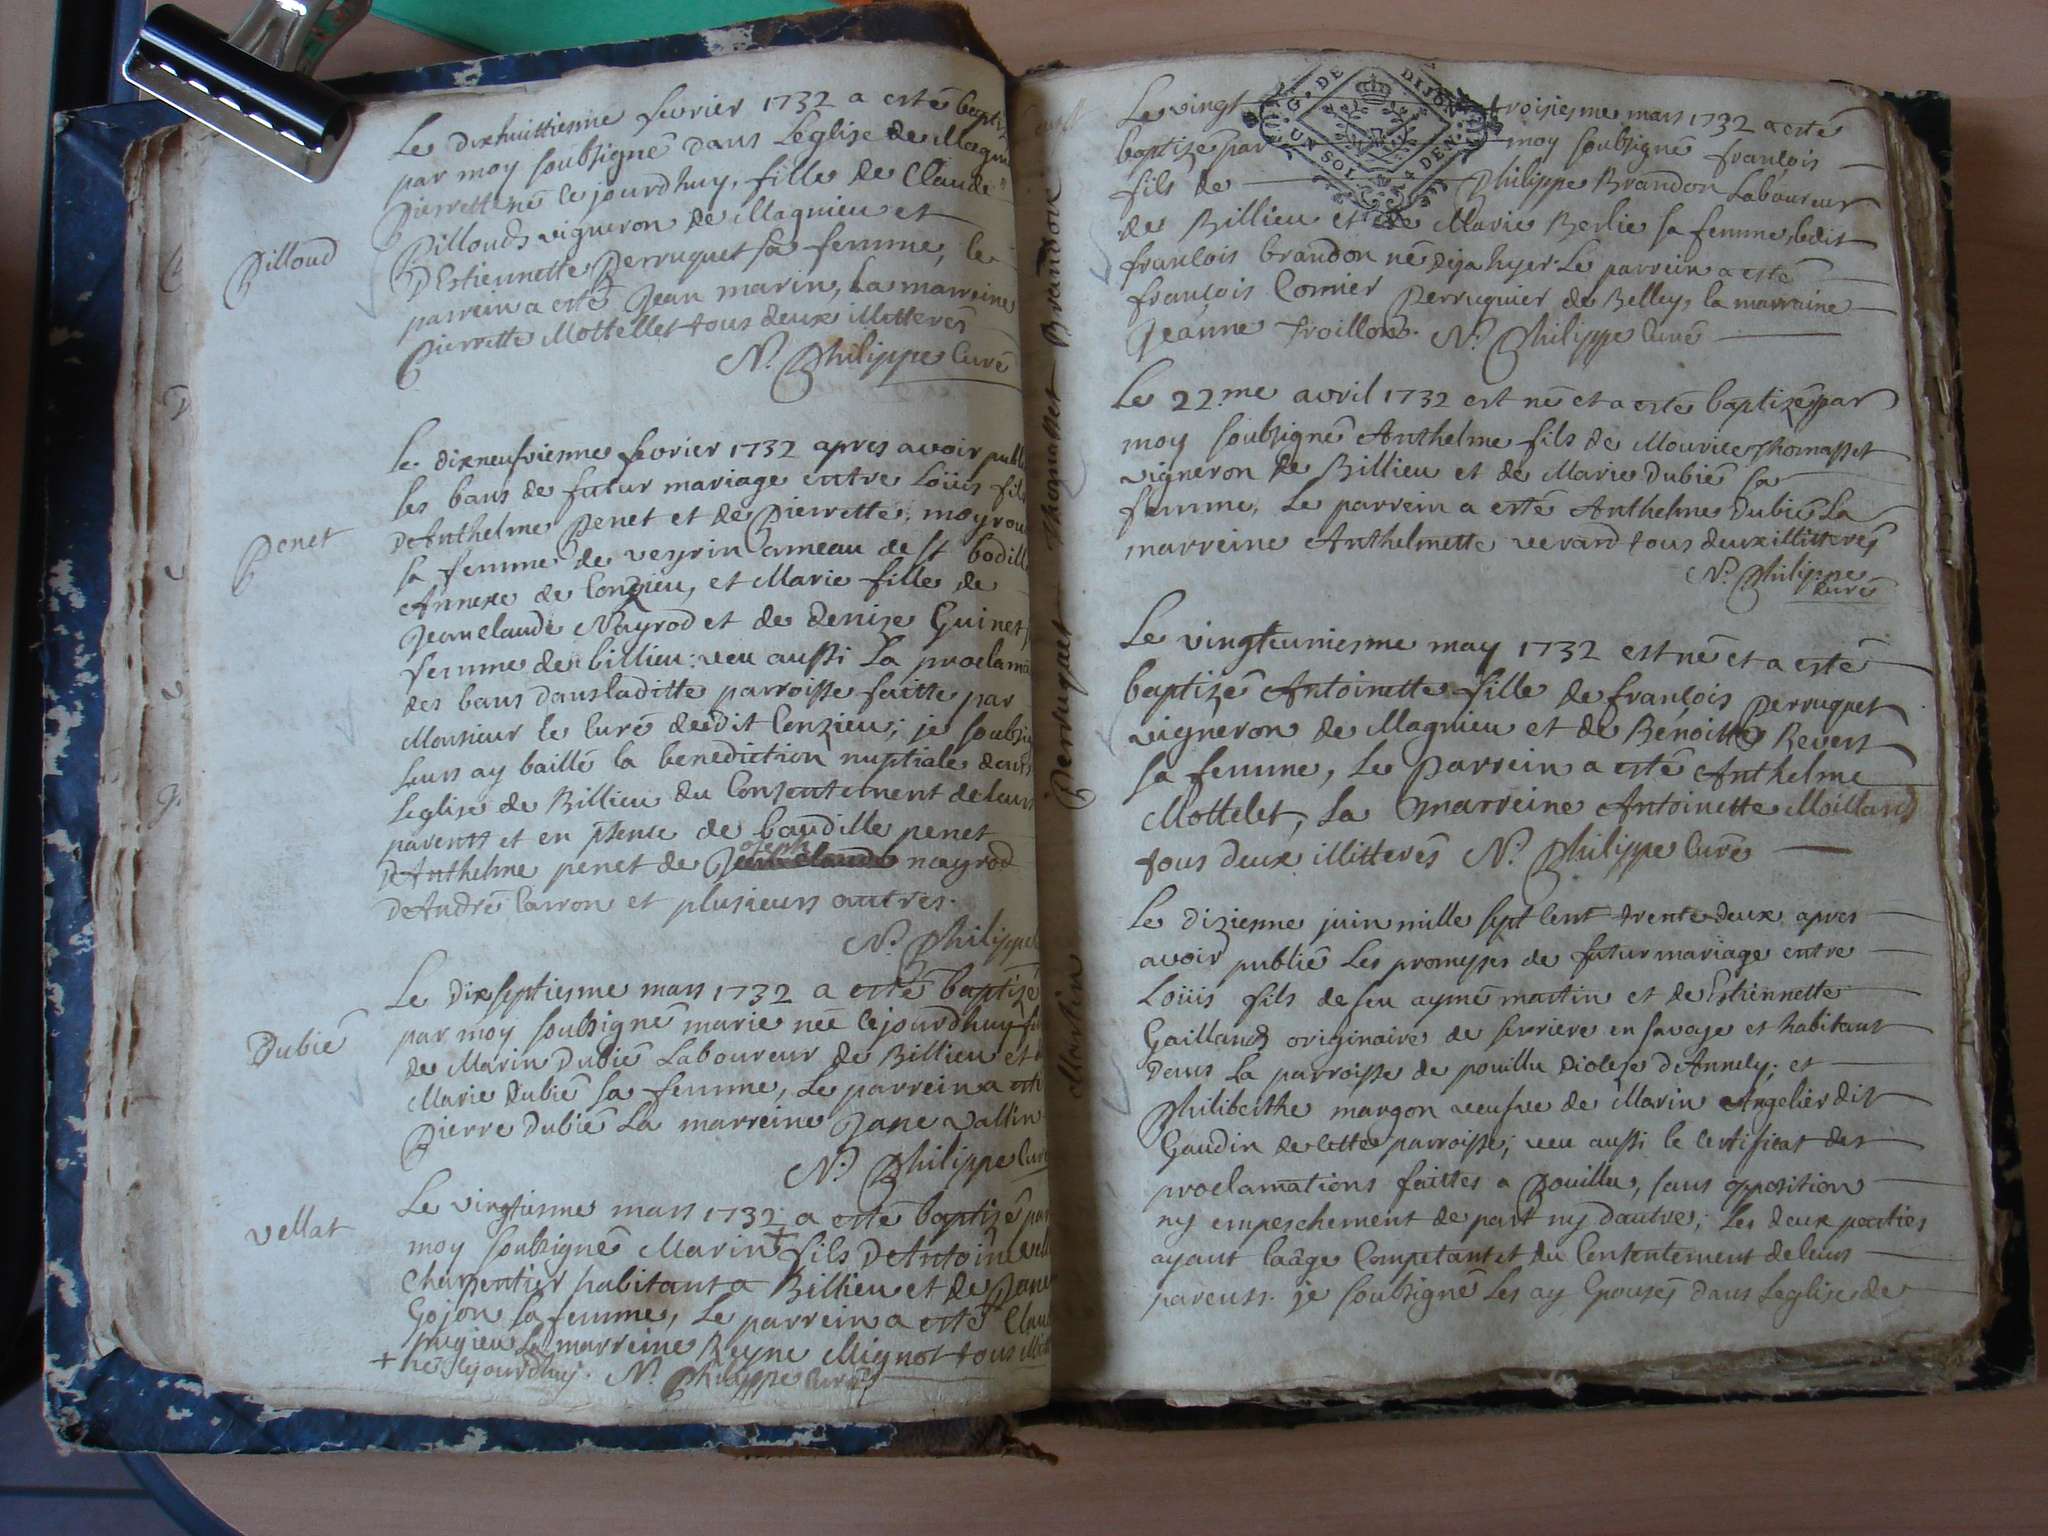 Le dixhuittiesme fevrier 1732 a esté baptis
par moy soubsigné dans Leglise de Magni
Pierrette né ce jourdhuy, fille de Claude
Pilloud
Pilloud vigneron de Magnieu et
D'Estiennette Perruquet sa femme, le
parrein a esté Jean marin, La marreine
Pierrette Mottellet tous deux illitterés
N. Philippe Curé
Le dixneufviesme fevrier 1732 apres avoir publ
les bans de futur mariage entre Loüis fils
Penet
D'Anthelme Penet et de Pierrette
sa femme de veyrin ameau de St bodill
Annexe de Conzieu, et Marie fille de
Jeanclaude Nayrod et de Denize Guinet
femme de billieu: veu aussi La proclama
des bans dans laditte parroisse faitte par
Monsieur le Curé dudit Conzieu; je soubsi
leurs ay baillé la benediction nuptiale dans
Leglise de Billieu du Consentement de leurs
parents et en psence de baudille penet
D'Anthelme penet de Joseph nayrod
d'André Carron et plusieurs autres.
N. Philippe
Le dixseptiesme mars 1732 a esté baptizé
Dubié
par moy soubsigné marie née cejourdhuy fil
de Marin Dubié Laboureur de Billieu et
Marie Dubié sa femme, Le parrein a esté
Pierre Dubié La marreine Jane Vallin
N. Philippe Curé
Vellat
Le vingtiesme mars 1732 a esté baptizé par
moy soubsigné Marin + fils D'Antoine vell
Charpentier habitant a Billieu et de Jane
Gojon sa femme, Le parrein a esté Clau
pugieu La marreine Reyne Mignot tous illitt
+ né cejourdhuy. N. Philippe curé
Brandon
Thomasset
Perruquet
Martin
G. DE DIJON
UN SOL 4 DEN.
Le vingt troisiesme mars 1732 a esté
baptizé par moy soubsigné françois
fils de Philippe Brandon Laboureur
de Billieu et de Marie Berlie sa femme, ledit
françois brandon né deja hyer. Le parrein a esté
françois Cornier Perruquier de Belley, la marraine
Jeanne Troillon. N. Philippe Curé
Le 22.me avril 1732 est né et a esté baptizé par
moy soubsigné Anthelme fils de Mourice Thomasset
vigneron de Billieu et de Marie Dubié sa
femme, Le parrein a esté Anthelme Dubié La
marreine Anthelmette verand tous deux illitterés
N. Philippe
Curé
Le vingteuniesme may 1732 est né et a esté
baptizé Antoinette fille de françois Perruquet
vigneron de Magnieu et de Benoitte Revert
sa femme, Le Parrein a esté Anthelme
Mottelet, La marreine Antoinette Moilland
tous deux illitterés N. Philippe Curé
Le dizieme juin mille sept Cent trente deux apres
avoir publié Les promesses de futur mariage entre
Loüis fils de feu aymé martin et de Estiennette
Gailland originaire de serriere en Savoye et habitant
Dans La parroisse de pouillu Diocese D'Annecy; et
Philiberthe margon veufve de Marin Angelier dit
Gaudin de cette parroisse; veu aussi le Certificat des
proclamations faittes a Pouillu, sans opposition
ny empeschement de part ny dautre; Les deux parties
ayant laâge Competant et du Consentement de leurs
parens. je soubsigné Les ay Epousés dans Leglise de